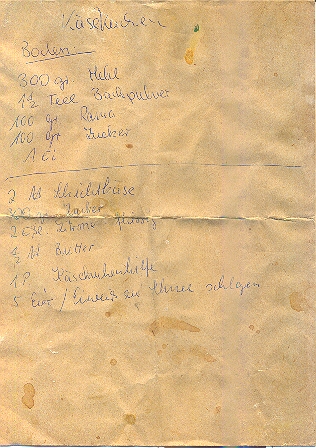 Käsekuchen
Boden:
300 gr. Mehl
1½ Teel Backpulver
100 gr Rama
100 gr Zucker
1 Ei
2 Schichtkäse
Zucker
2 Essl. Zitrone flüssig
½ Butter
1 P Käsekuchenhilfe
5 Eier / Eiweis zu Schnee schlagen